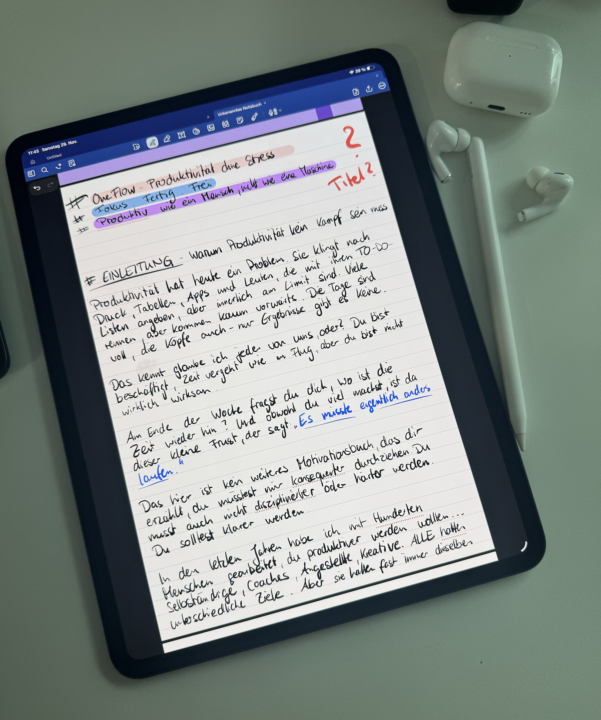 17:43 Samstag 29. Nov.
Untitled
Unbenanntes Notizbuch
# OneFlow - Produktivität ohne Stress
# Fokus Fertig Frei
# Produktiv wie ein Mensch, nicht wie eine Maschine
?
Titel?
# EINLEITUNG - Warum Produktivität kein Kampf sein muss
Produktivität hat heute ein Problem. Sie klingt nach
Druck, Tabellen, Apps und Leuten, die mit ihren TO-DO-
Listen angeben, aber innerlich am Limit sind. Viele
rennen, aber kommen kaum vorwärts. Die Tage sind
voll, die Köpfe auch - nur Ergebnisse gibt es keine.
Das kennt glaube ich jeder von uns, oder? Du bist
beschäftigt, Zeit vergeht wie im Flug, aber du bist nicht
wirklich wirksam.
Am Ende der Woche fragst du dich, wo ist die
Zeit wieder hin? Und obwohl du viel machst, ist da
dieser kleine Frust, der sagt „Es müsste eigentlich anders
laufen."
Das hier ist kein weiteres Motivationsbuch, das dir
erzählt, du müsstest nur konsequenter durchziehen. Du
musst auch nicht disziplinierter oder härter werden.
Du solltest klarer werden
In den letzten Jahren habe ich mit Hunderten
Menschen gearbeitet, die produktiver werden wollen...
Selbständige, Coaches, Angestellte, Kreative. ALLE hatten
unterschiedliche Ziele. Aber sie hatten fast immer dieselben